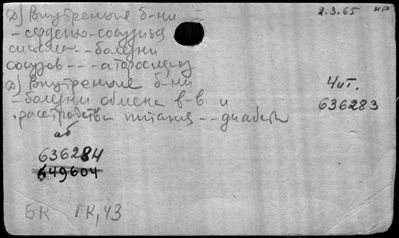 д) Внутренние б-ни
2.3.65 нр
- сердечно-сосудист
система -- болезни
сосудов --- атеросклероз
д) Внутренние б-ни
Чит.
- болезни обмена в-в и
636283
расстройства питания -- диабет
аб
636284
649604
БК ГК, 43